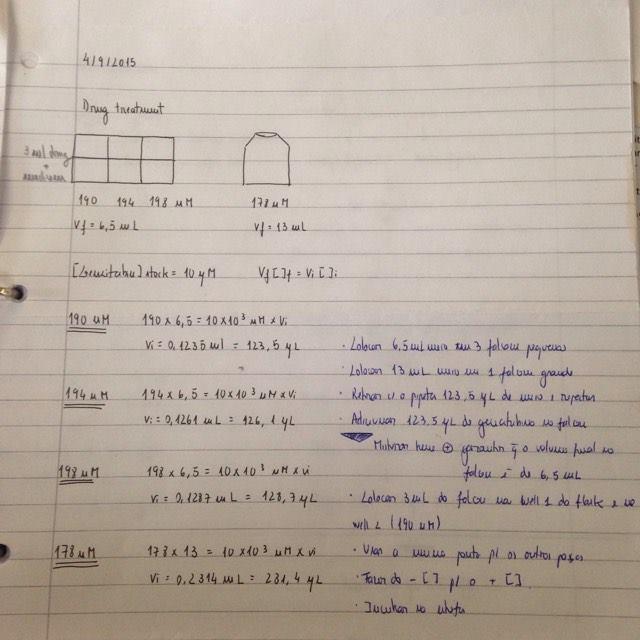 4/9/2015
Drug treatment
3 ml drug
+
190 194 198 uM 178 uM
Vf = 6,5 mL Vf = 13 mL
stock = 10 yM Vf [ ]f = Vi [ ]i
190 uM 190 x 6,5 = 10x10³ uM x Vi
Vi = 0,1235 ml = 123,5 yL
194 uM 194 x 6,5 = 10x10³ uM x Vi
Vi = 0,1261 mL = 126,1 yL
198 uM 198 x 6,5 = 10x10³ uM x Vi
Vi = 0,1287 mL = 128,7 yL
178 uM 178 x 13 = 10x10³ uM x Vi
Vi = 0,2314 mL = 231,4 yL
· Colocar 6,5 mL meio em 3 falcon pequenos
· Colocar 13 mL meio em 1 falcon grande
· Retirar c/ o pipeta 123,5 yL de meio e
· Adicionar 123,5 yL de no falcon
Misturar bem ⊕ garantir q̃ o volume final no
falcon é de 6,5 mL
· Colocar 3 mL do falcon na well 1 da e na
well 2 (190 uM)
· Usar a mesma p/ os outros
· Fazer do - [ ] p/ o + [ ].
· Incubar na